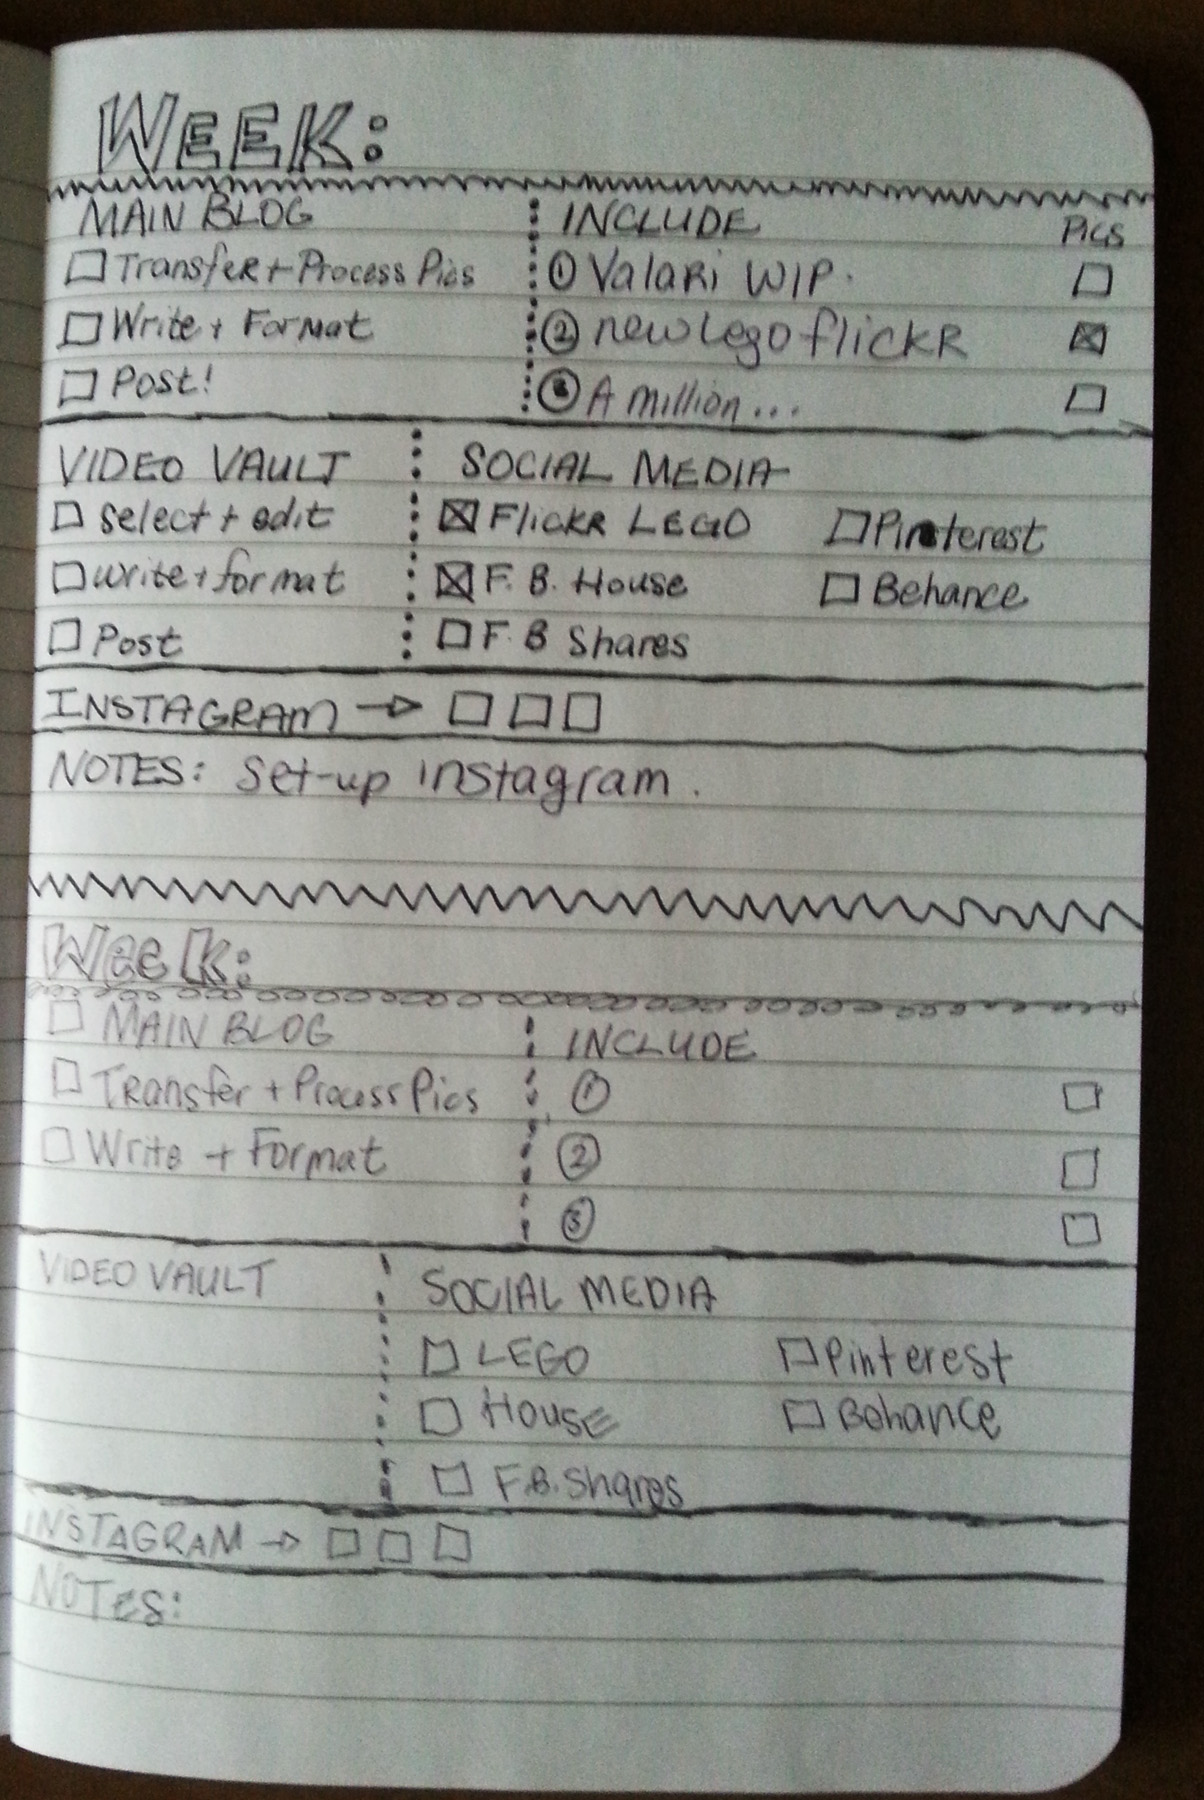 WEEK:
MAIN BLOG INCLUDE PICS
☐ Transfer + Process Pics ① Valari WIP. ☐
☐ Write + Format ② new Lego flickR ☒
☐ Post! ③ A million... ☐
VIDEO VAULT SOCIAL MEDIA
☐ select + edit ☒ FlickR LEGO ☐ Pinterest
☐ write + format ☒ F. B. House ☐ Behance
☐ Post ☐ F. B Shares
INSTAGRAM → ☐ ☐ ☐
NOTES: set-up instagram.
Week:
☐ MAIN BLOG INCLUDE
☐ Transfer + Process Pics ① ☐
☐ Write + Format ② ☐
③ ☐
VIDEO VAULT SOCIAL MEDIA
☐ LEGO ☐ Pinterest
☐ House ☐ Behance
☐ F.B. Shares
INSTAGRAM → ☐ ☐ ☐
NOTES: